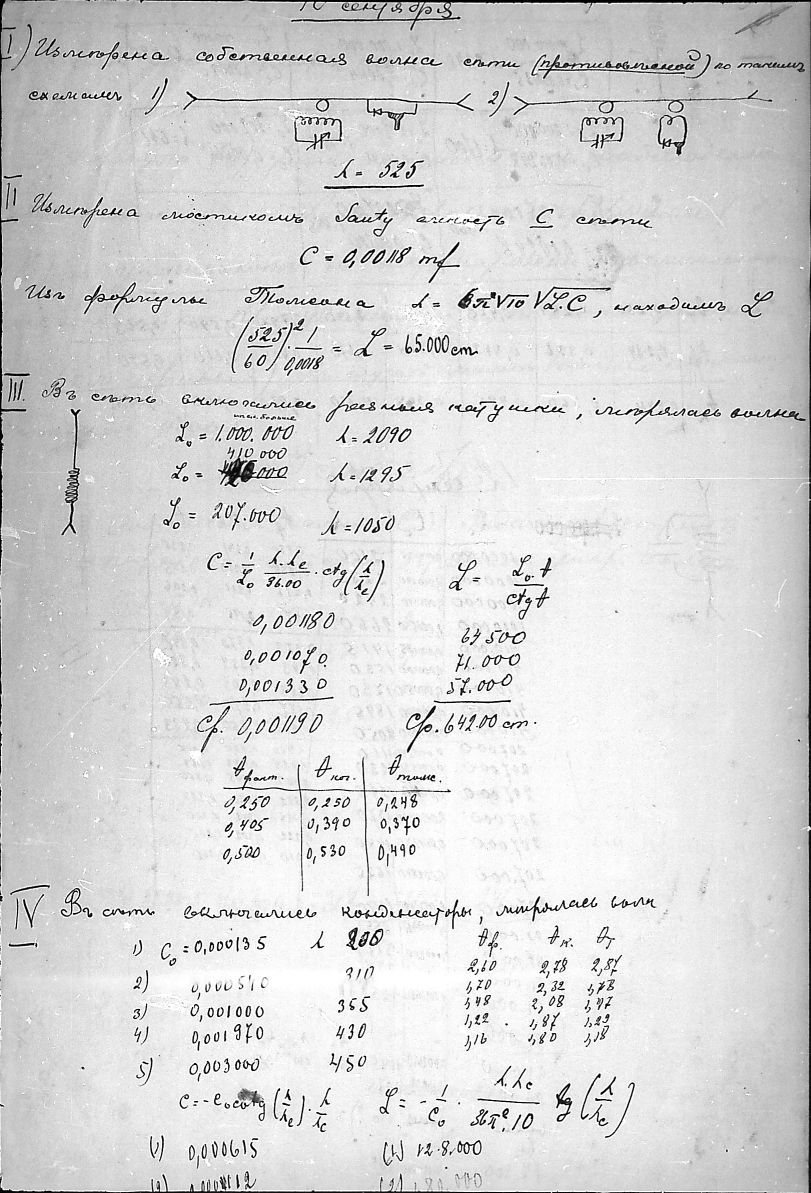 10 сентября
I) Измѣрена собственная волна сѣти (противовѣсной) по такимъ
схемамъ 1) 2)
λ = 525
II
Измѣрена мостикомъ Sauty емкость C сѣти
C = 0,00118 mf
Изъ формулы Томсона λ = 6π²√10 √L.C, находимъ L
(525/60)² · 1/0,0018 = L = 65.000 cm
III. Въ сѣть включались разныя катушки, мѣрялась волна
L₀ = 1.000.000 λ = 2090
410 000
L₀ = λ = 1295
L₀ = 207.000 λ = 1050
C = 1/L₀ · λ.λc/36.00 · ctg(λ/λc) L = L₀.θ/ctgθ
0,001180 64 500
0,001070. 71.000
0,001330 57.000
Ср. 0,001190 Ср. 64200 cm.
θ факт. θ ког. θ томс.
0,250 0,250 0,248
0,405 0,390 0,370
0,500 0,530 0,490
IV Въ сѣть включались конденсаторы, мѣрялась волн
1) C₀ = 0,000135 λ 230 θф. θк. θт
2) 0,000540 310 2,10 2,78 2,87
3) 0,001000 365 1,70 2,32 1,78
4) 0,001970 430 1,48 2,08 1,47
5) 0,003000 450 1,22 1,87 1,29
1,16 1,80 1,18
C = -C₀ cotg(λ/λc) · λ/λc L = -1/C₀ · λ.λc/36π².10 tg(λ/λc)
(1) 0,000615 (1) 12.8.000
(2) (2)